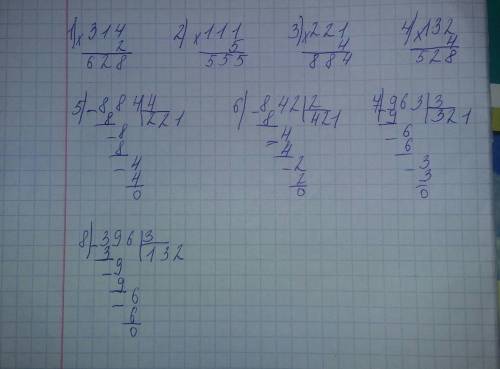 1) × 314 2) × 111 3) × 221 4) × 132
2 5 4 4
628 555 884 528
5) - 884 4 6) - 842 2 7) - 963 3
8 221 8 421 9 321
- 8 - 4 - 6
8 4 6
- 4 - 2 - 3
4 2 3
0 0 0
8) - 396 3
3 132
- 9
9
- 6
6
0